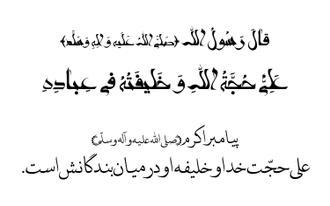 قالَ رَسُولُ اللهِ ﴿صَلَّی اللهُ عَلَیهِ وَ الِهِ وَ سَلَّم﴾
عَلِیٌّ حُجَّةُ اللهِ وَ خَلیفَتُهُ فی عِبادِهِ
پیامبر اکرم (صلی الله علیه و آله و سلم)
علی حجّت خدا و خلیفه او در میان بندگانش است.